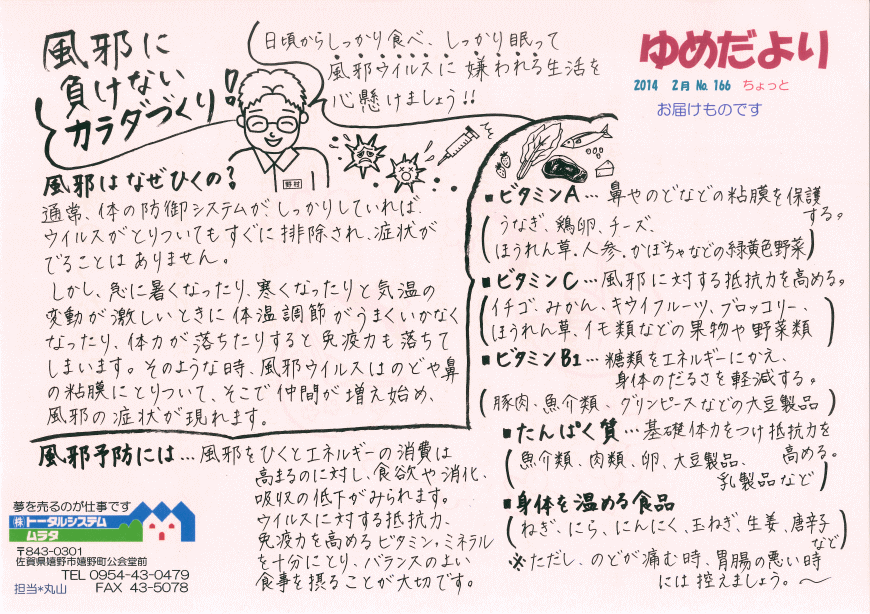 風邪に
負けない
カラダづくり!!
日頃からしっかり食べ、しっかり眠って
風邪ウイルスに嫌われる生活を
心懸けましょう!!
ゆめだより
2014 2月 No.166 ちょっと
お届けものです
野村
風邪はなぜひくの?
通常、体の防御システムが、しっかりしていれば、
ウイルスがとりついてもすぐに排除され、症状が
でることはありません。
しかし、急に暑くなったり、寒くなったりと気温の
変動が激しいときに体温調節がうまくいかなく
なったり、体力が落ちたりすると免疫力も落ちて
しまいます。そのような時、風邪ウイルスはのどや鼻
の粘膜にとりついて、そこで仲間が増え始め、
風邪の症状が現れます。
風邪予防には…風邪をひくとエネルギーの消費は
高まるのに対し、食欲や消化、
吸収の低下がみられます。
ウイルスに対する抵抗力、
免疫力を高めるビタミン、ミネラル
を十分にとり、バランスのよい
食事を摂ることが大切です。
■ビタミンA…鼻やのどなどの粘膜を保護
する。
(うなぎ、鶏卵、チーズ、
ほうれん草、人参、かぼちゃなどの緑黄色野菜)
■ビタミンC…風邪に対する抵抗力を高める。
(イチゴ、みかん、キウイフルーツ、ブロッコリー、
ほうれん草、イモ類などの果物や野菜類)
■ビタミンB1…糖類をエネルギーにかえ、
身体のだるさを軽減する。
(豚肉、魚介類、グリンピースなどの大豆製品)
■たんぱく質…基礎体力をつけ抵抗力を
高める。
(魚介類、肉類、卵、大豆製品、
乳製品など)
■身体を温める食品
(ねぎ、にら、にんにく、玉ねぎ、生姜、唐辛子
など)
※ただし、のどが痛む時、胃腸の悪い時
には控えましょう。〜
夢を売るのが仕事です
(株)トータルシステム
ムラタ
〒843-0301
佐賀県嬉野市嬉野町公会堂前
TEL 0954-43-0479
担当*丸山 FAX 43-5078